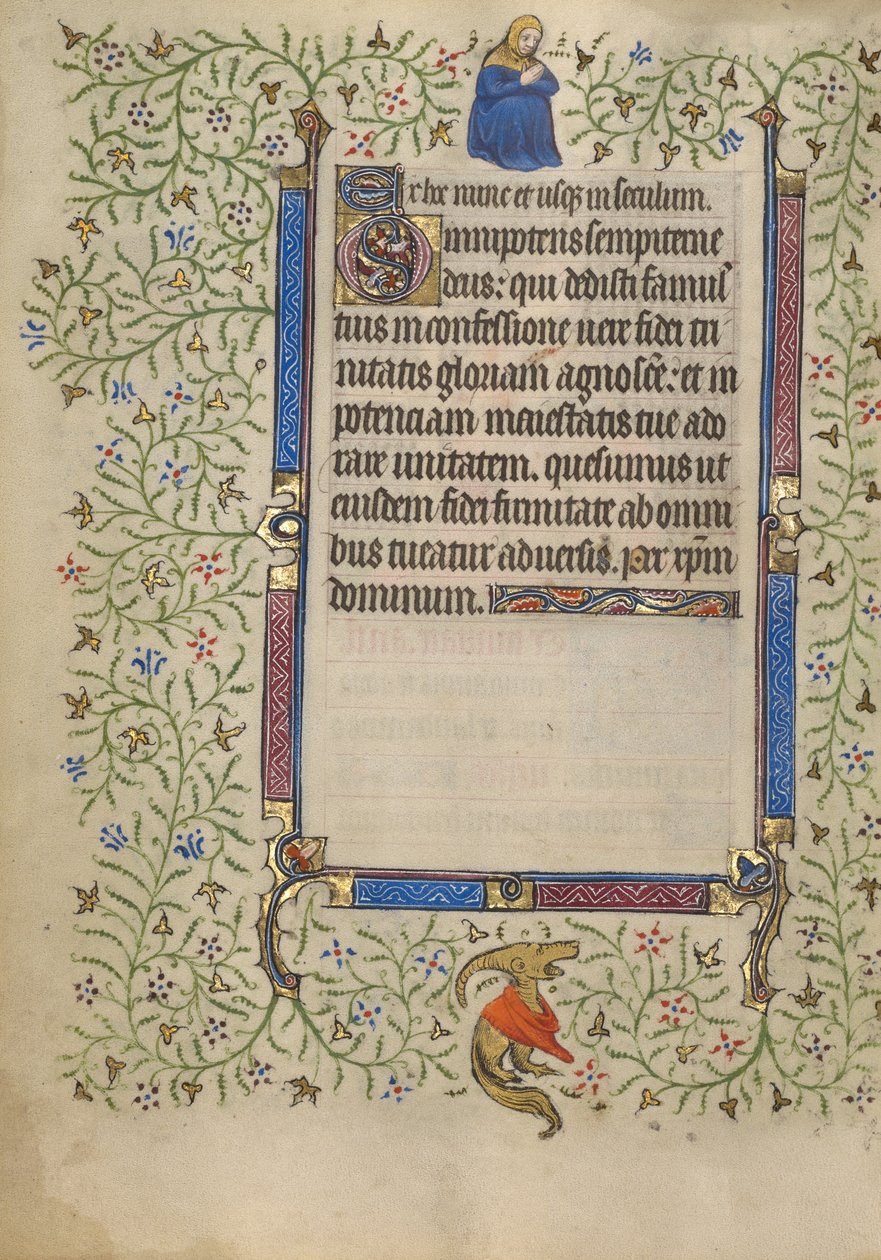 Ex hoc nunc et usq; in seculum.
Omnipotens sempiterne
deus: qui dedisti famul'
tuis in confessione uere fidei tri
nitatis gloriam agnosc̄e: et in
potenciam maiestatis tue ado
rare unitatem. quesumus ut
eiusdem fidei firmitate ab omni
bus tueatur aduersis. per xp̄m
dominum.